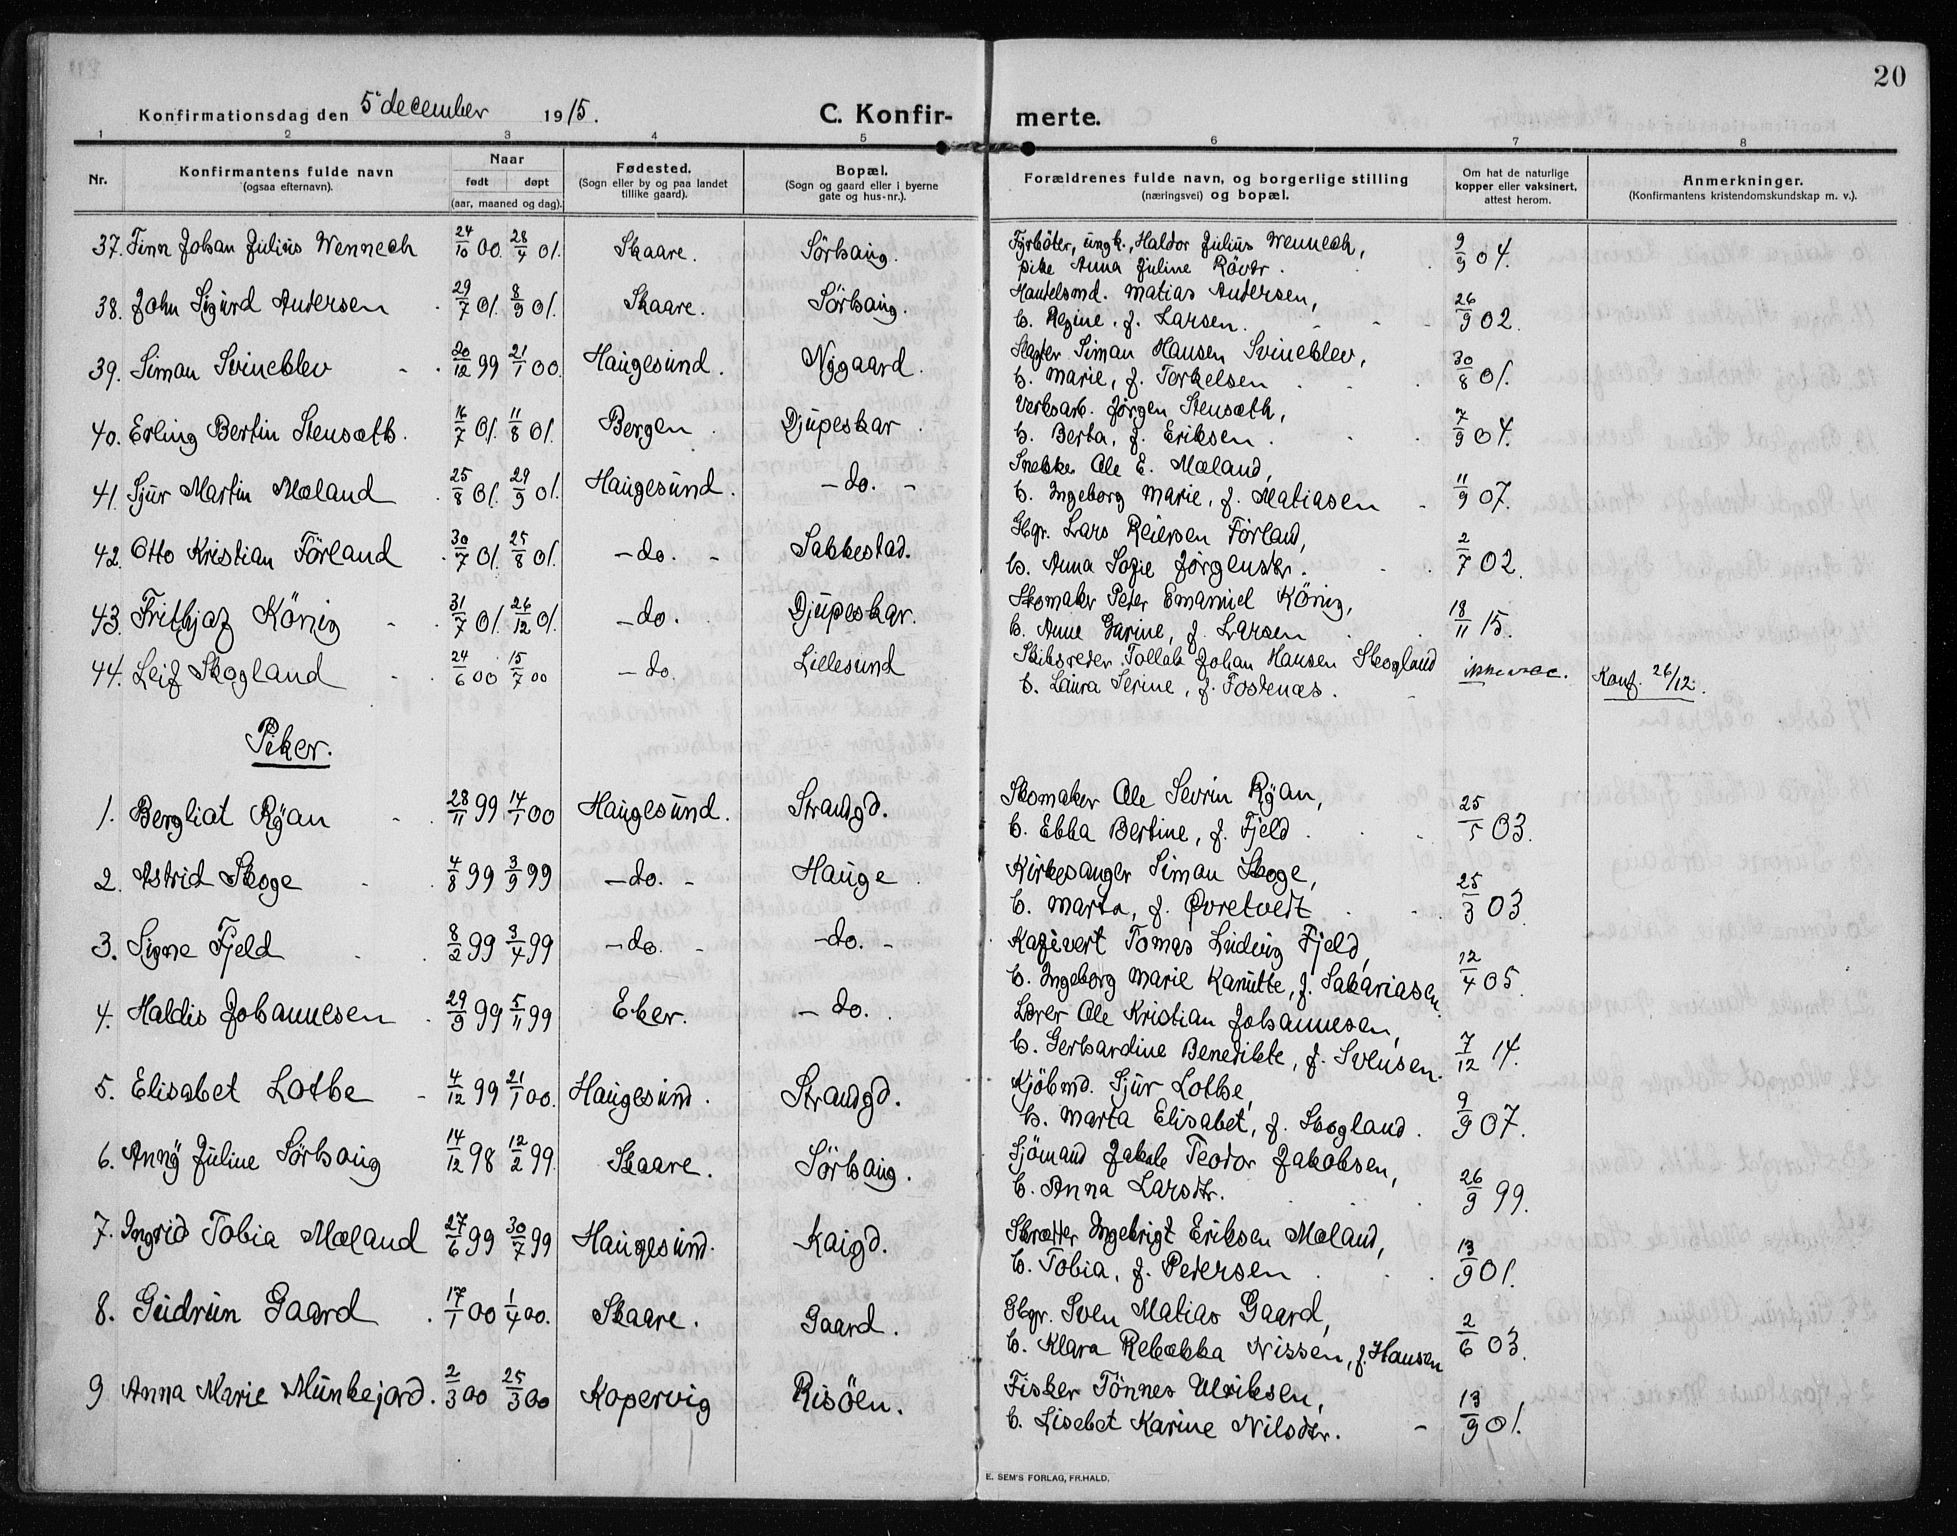 20
Konfirmationsdag den 5 december 1915. C. Konfir- merte.
1 2 3 4 5 6 7 8
Nr. Konfirmantens fulde navn (ogsaa efternavn). Naar født døpt (aar, maaned og dag). Fødested. (Sogn eller by og paa landet tillike gaard). Bopæl. (Sogn og gaard eller i byerne gate og hus-nr.). Forældrenes fulde navn, og borgerlige stilling (næringsvei) og bopæl. Om hat de naturlige kopper eller vaksinert, attest herom. Anmerkninger. (Konfirmantens kristendomskundskap m. v.).
37. Finn Johan Julius Wennech 24/10 00. 28/4 01. Skaare. Sörhaug. Fyrböter, ungk., Haldor Julius Wennech, 9/9 04.
pike Anna Juline Röver.
38. John Sigurd Andersen 29/7 01. 8/9 01. Skaare. Sörhaug. Handelsmd. Matias Andersen, 26/9 02.
h. Regine, f. Larsen.
39. Simon Svineblev 20/12 99 21/1 00. Haugesund. Nygaard. Slagter Simon Hansen Svineblev, 30/8 01.
h. Marie, f. Torkelsen
40. Erling Bertin Stensæth. 16/7 01. 11/8 01. Bergen. Djupeskar Verksarb. Jörgen Stensæth, 7/9 04.
h. Berta, f. Eriksen.
41. Sjur Martin Mæland 25/8 01. 29/9 01. Haugesund. - do. - Snekker Ole E. Mæland, 11/9 07.
h. Ingeborg Marie, f. Matiasen
42. Otto Kristian Förland 30/7 01. 25/8 01. - do. - Sakkestad. Gbr. Lars Reiersen Förland, 2/7 02.
h. Anna Sofie Jörgensdr.
43. Frithjof König 31/7 01. 26/12 01. - do. Djupeskar. Skomaker Peter Emanuel König, 18/11 15.
h. Anne Garine, f. Larsen
44. Leif Skogland 24/6 00 15/7 00 - do. Lillesund Skibsreder Tollak Johan Hansen Skogland ikke vac. Konf. 26/12.
h. Laura Serine, f. Fostenæs.
Piker.
1. Bergliot Ryan 28/11 99 14/1 00 Haugesund. Strandgd. Skomaker Ole Sevrin Ryan, 25/5 03.
h. Ebba Bertine, f. Fjeld.
2. Astrid Skoge 4/8 99 3/9 99 - do. - Hauge Kirkesanger Simon Skoge, 25/3 03
h. Marta, f. Øvretvedt
3. Signe Fjeld 8/2 99 3/4 99 - do. - - do. - Kafévert Tomas Ludvig Fjeld, 12/4 05.
h. Ingeborg Marie Kanutte, f. Sakariasen.
4. Haldis Johannesen 29/9 99 5/11 99 Eker. - do. Lærer Ole Kristian Johannesen, 7/12 14.
h. Gerhardine Benedikte, f. Svensen.
5. Elisabet Lothe 4/12 99 21/1 00. Haugesund. Strandgd. Kjöbmd. Sjur Lothe, 9/9 07.
h. Marta Elisabet, f. Skogland.
6. Anny Juline Sörhaug 14/12 98 12/2 99. Skaare. Sörhaug. Sjömand Jakob Teodor Jakobsen, 26/9 99.
h. Anna Larsdtr.
7. Ingrid Tobia Mæland 27/6 99 30/7 99 Haugesund. Kaigd. Skrædder Ingebrigt Eriksen Mæland, 13/9 01.
h. Tobia, f. Petersen
8. Gudrun Gaard 17/1 00 1/4 00. Skaare. Gaard. Gbr. Sven Matias Gaard, 2/6 03.
h. Klara Rebækka Nissen, f. Hansen
9 Anna Marie Munkejord. 2/3 00 25/3 00 Kopervig Risöen. Fisker Tönnes Ulriksen, 13/9 01.
h. Lisebet Karine Nilsdtr.
E. SEM'S FORLAG, FR.HALD.